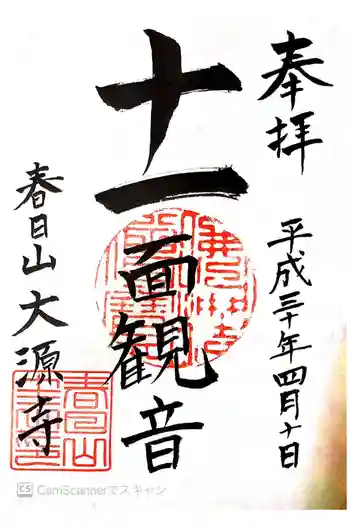 奉拝
平成三十年四月十日
十一面観音
春日山大源寺
春日山
CS CamScannerでスキャン